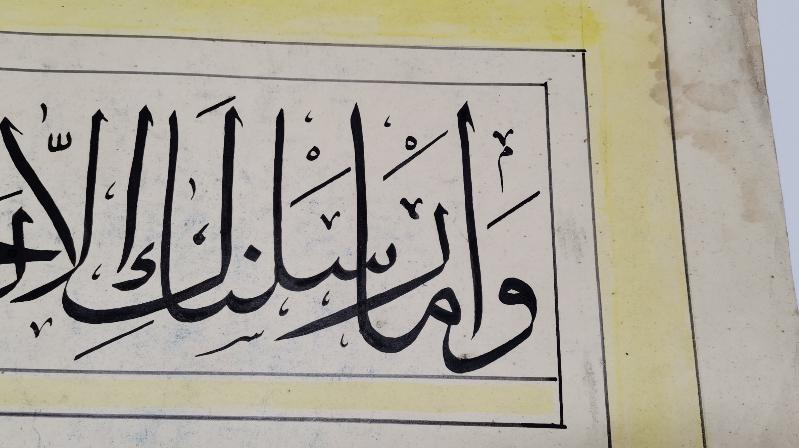 وَمَا أَرْسَلْنَٰكَ إِلَّا